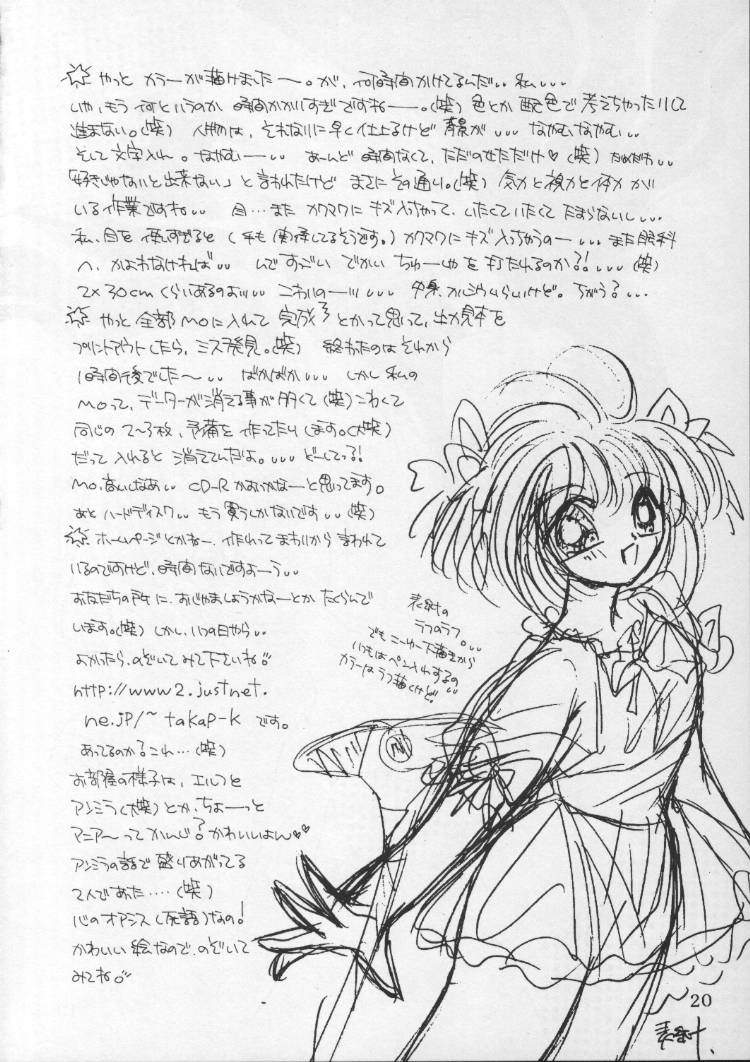 ☆やっと カラーが描けました〜。が、何時間かけてるんだ、、私、、、
いや、もう 何というのか 時間かかりすぎですねー―。(笑) 色とか 配色で 考えちゃったりして
進まない。(笑) 人物は、それなりに早く仕上るけど 背景が、、、なかむなかむ、、
そして文字入れ。なかむー―、、 あーんど 時間なくて、ただのせただけ♡(笑) だめだわ、、
「好きじゃないと出来ない」と 言われたけど まさに その通り。(笑) 気力と視力と体力 が
いる作業ですね、、 目…また カクマクに キズ入っちゃって、いたくていたくて たまらないし、、、
私、目を 使いすぎると ( も 関係してるそうです。) カクマクに キズ入っちゃうの―、、、また眼科
へ、かよわなければ、、 んで すっごい でかい ちゅーしゃを 打たれるのか?!、、、(笑)
2×30cm くらいあるのよ、、、 こわいの―、、、 中身、 らしいけど。ちがう?、、、
☆ やっと 全部 MOに入れて 完成 とかって思って、出力見本を
プリントアウトしたら、ミス発見。(笑) 終わったのは それから
1時間後でした〜、、 ばかばか、、、 しかし 私の
MOって、データーが消える事が 多くて(笑) こわくて
同じの 2〜3枚、予備を 作ってたりします。(大笑)
だって 入れると 消えてんだよ。、、、 どーしてっ!
MO、高いしなあ、、 CD-R かおいかな―と思ってます。
あと ハードディスク、、 もう買うしかないです、、(笑)
☆ ホームページとかね―、作れって まわりから 言われて
いるのですけど、時間ないですよーう、、
お友だちの所に、おじゃましようかな―とか たくらんで
います。(笑) しかし、いつの日やら、、
よかったら、のぞいて みて 下さいね
http://www2.justnet.
ne.jp/~takap-k です。
あってるのか?これ…(笑)
お部屋の様子は、エルフと
アンミラ(大笑) とか、ちょーっと
マニア〜って かんじ? かわいいよん♡♡
アンミラの話で 盛りあがってる
2人であった‥‥(笑)
心のオアシス(死語)なの!
かわいい 絵なので、のぞいて
みてね
表紙の
ラフのラフ。、、、
でも ここの下描きから
いつもはペン入れするの
カラーはラフ描くけど。
20